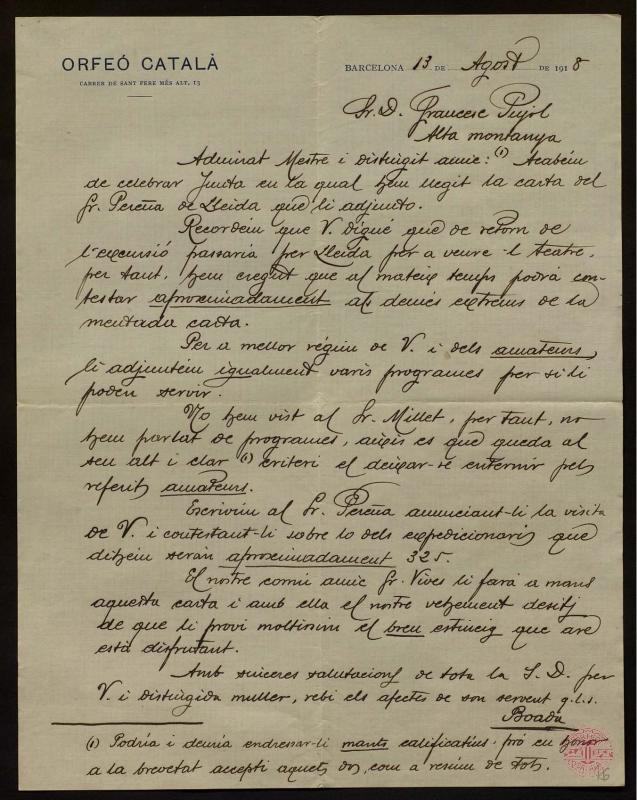 ORFEÓ CATALÀ
CARRER DE SANT PERE MÉS ALT, 13
BARCELONA 13 DE Agost DE 1918
Sr. D. Francesc Pujol
Alta montanya
Admirat Mestre i distingit amic: (1) Acabém
de celebrar Junta en la qual hem llegit la carta del
Sr. Pereña de Lleida que li adjunto.
Recordém que V. digué que de retorn de
l'excursió passaria per Lleida per a veure-l teatre,
per tant, hem cregut que al mateix temps podrá con-
testar aproximadament als demés extrems de la
mentada carta.
Per a mellor régim de V. i dels amateurs,
li adjuntém igualment varis programes per si li
poden servir.
No hem vist al Sr. Millet, per tant, no
hem parlat de programes, aixís es que queda al
seu alt i clar (1) criteri el deixar-se enternir pels
referits amateurs.
Escrivim al Sr. Pereña anunciant-li la visita
de V. i contestant-li sobre lo dels expedicionaris que
dihém serán aproximadament 325.
El nostre comú amic Sr. Vives li fará a mans
aquesta carta i amb ella el nostre vehement desitj
de que li provi moltíssim el breu estiueig que are
está disfrutant.
Amb sinceres salutacions de tota la J. D. per
V. i distingida muller, rebi els afectes de son servent q.l.s.
Boada
(1) Podría i deuria endressar-li mants calificatius. pró en honor
a la brevetat accepti aquets dos, com a resúm de tots.